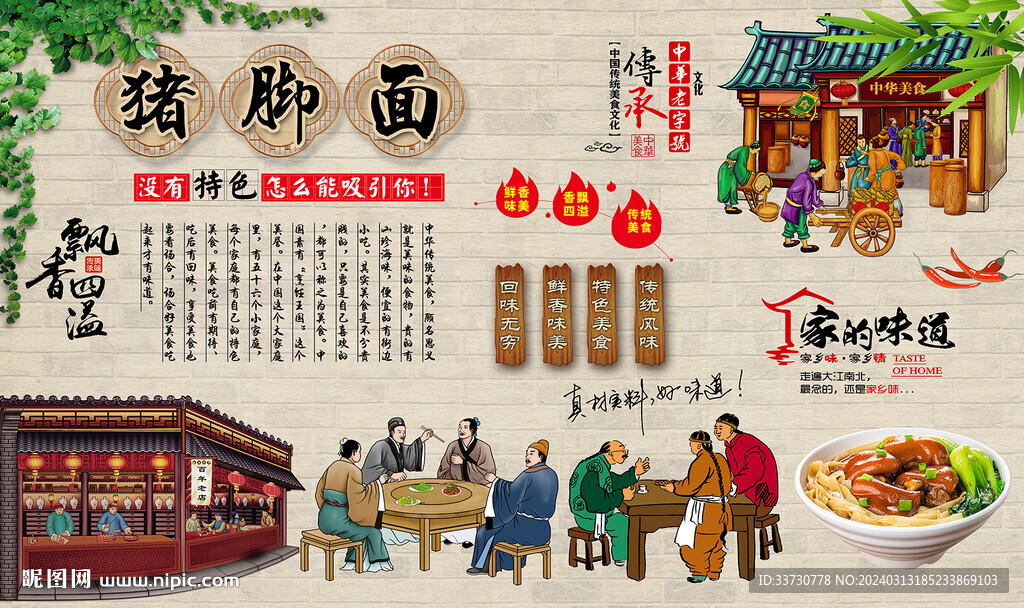 猪脚面
没有特色怎么能吸引你！
飘香四溢
中华传统美食，顾名思义
就是美味的食物，贵的有
山珍海味，便宜的有街边
小吃。其实美食是不分贵
贱的，只要是自己喜欢的
，都可以称之为美食。中
国素有“烹饪王国”这个
美誉。在中国这个大家庭
里，有五十六个小家庭，
每个家庭都有自己的特色
美食。美食吃前有期待、
吃后有回味，享受美食也
要看场合，场合好美食吃
起来才有味道。
文化
中華老字號
傳承
中華
美食
【中国传统美食文化】
鲜香
味美
香飘
四溢
传统
美食
传统风味
特色美食
鲜香味美
回味无穷
真材实料,好味道！
中华美食
食
家的味道
家乡味·家乡情
TASTE
OF HOME
走遍大江南北，
最念的，还是家乡味...
百年老店
昵图网 www.nipic.com
ID:33730778 NO:20240313185233869103